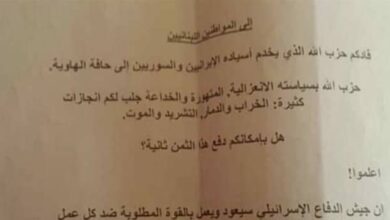 إلى المواطنين اللبنانيين
قادكم حزب الله الذي يخدم أسياده الإيرانيين والسوريين إلى حافة الهاوية.
حزب الله بسياسته الانعزالية, المتهورة والخداعة جلب لكم انجازات
كثيرة: الخراب والدمار, التشريد والموت.
هل بإمكانكم دفع هذا الثمن ثانية؟
اعلموا!
ان جيش الدفاع الإسرائيلي سيعود ويعمل بالقوة المطلوبة ضد كل عمل